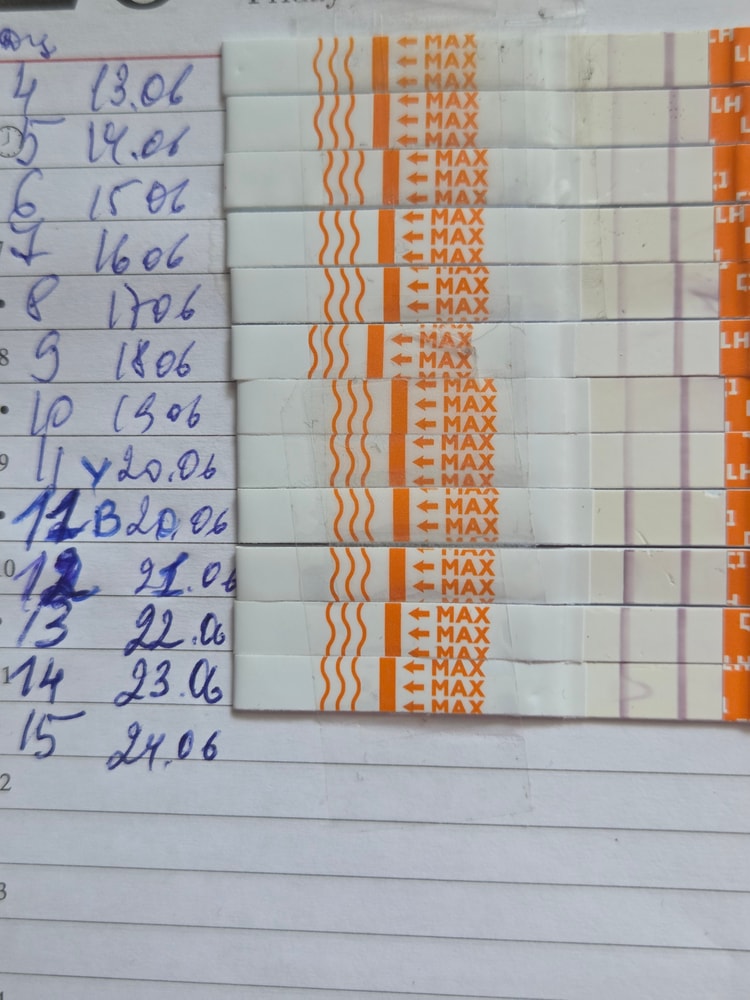 Friday
ДЦ
4 13.06
← MAX
← MAX
← MAX
LH
5 14.06
← MAX
← MAX
← MAX
LH
6 15 06
← MAX
← MAX
← MAX
7 16 06
← MAX
← MAX
← MAX
LH
8 17 06
← MAX
← MAX
8
9 18 06
← MAX
← MAX
← MAX
LH
10 19 06
← MAX
← MAX
← MAX
9
11 У 20.06
← MAX
← MAX
LH
11 В 20.06
← MAX
← MAX
10
12 21.06
← MAX
← MAX
13 22.06
← MAX
← MAX
← MAX
LH
11
14 23.06
← MAX
← MAX
← MAX
15 24.06